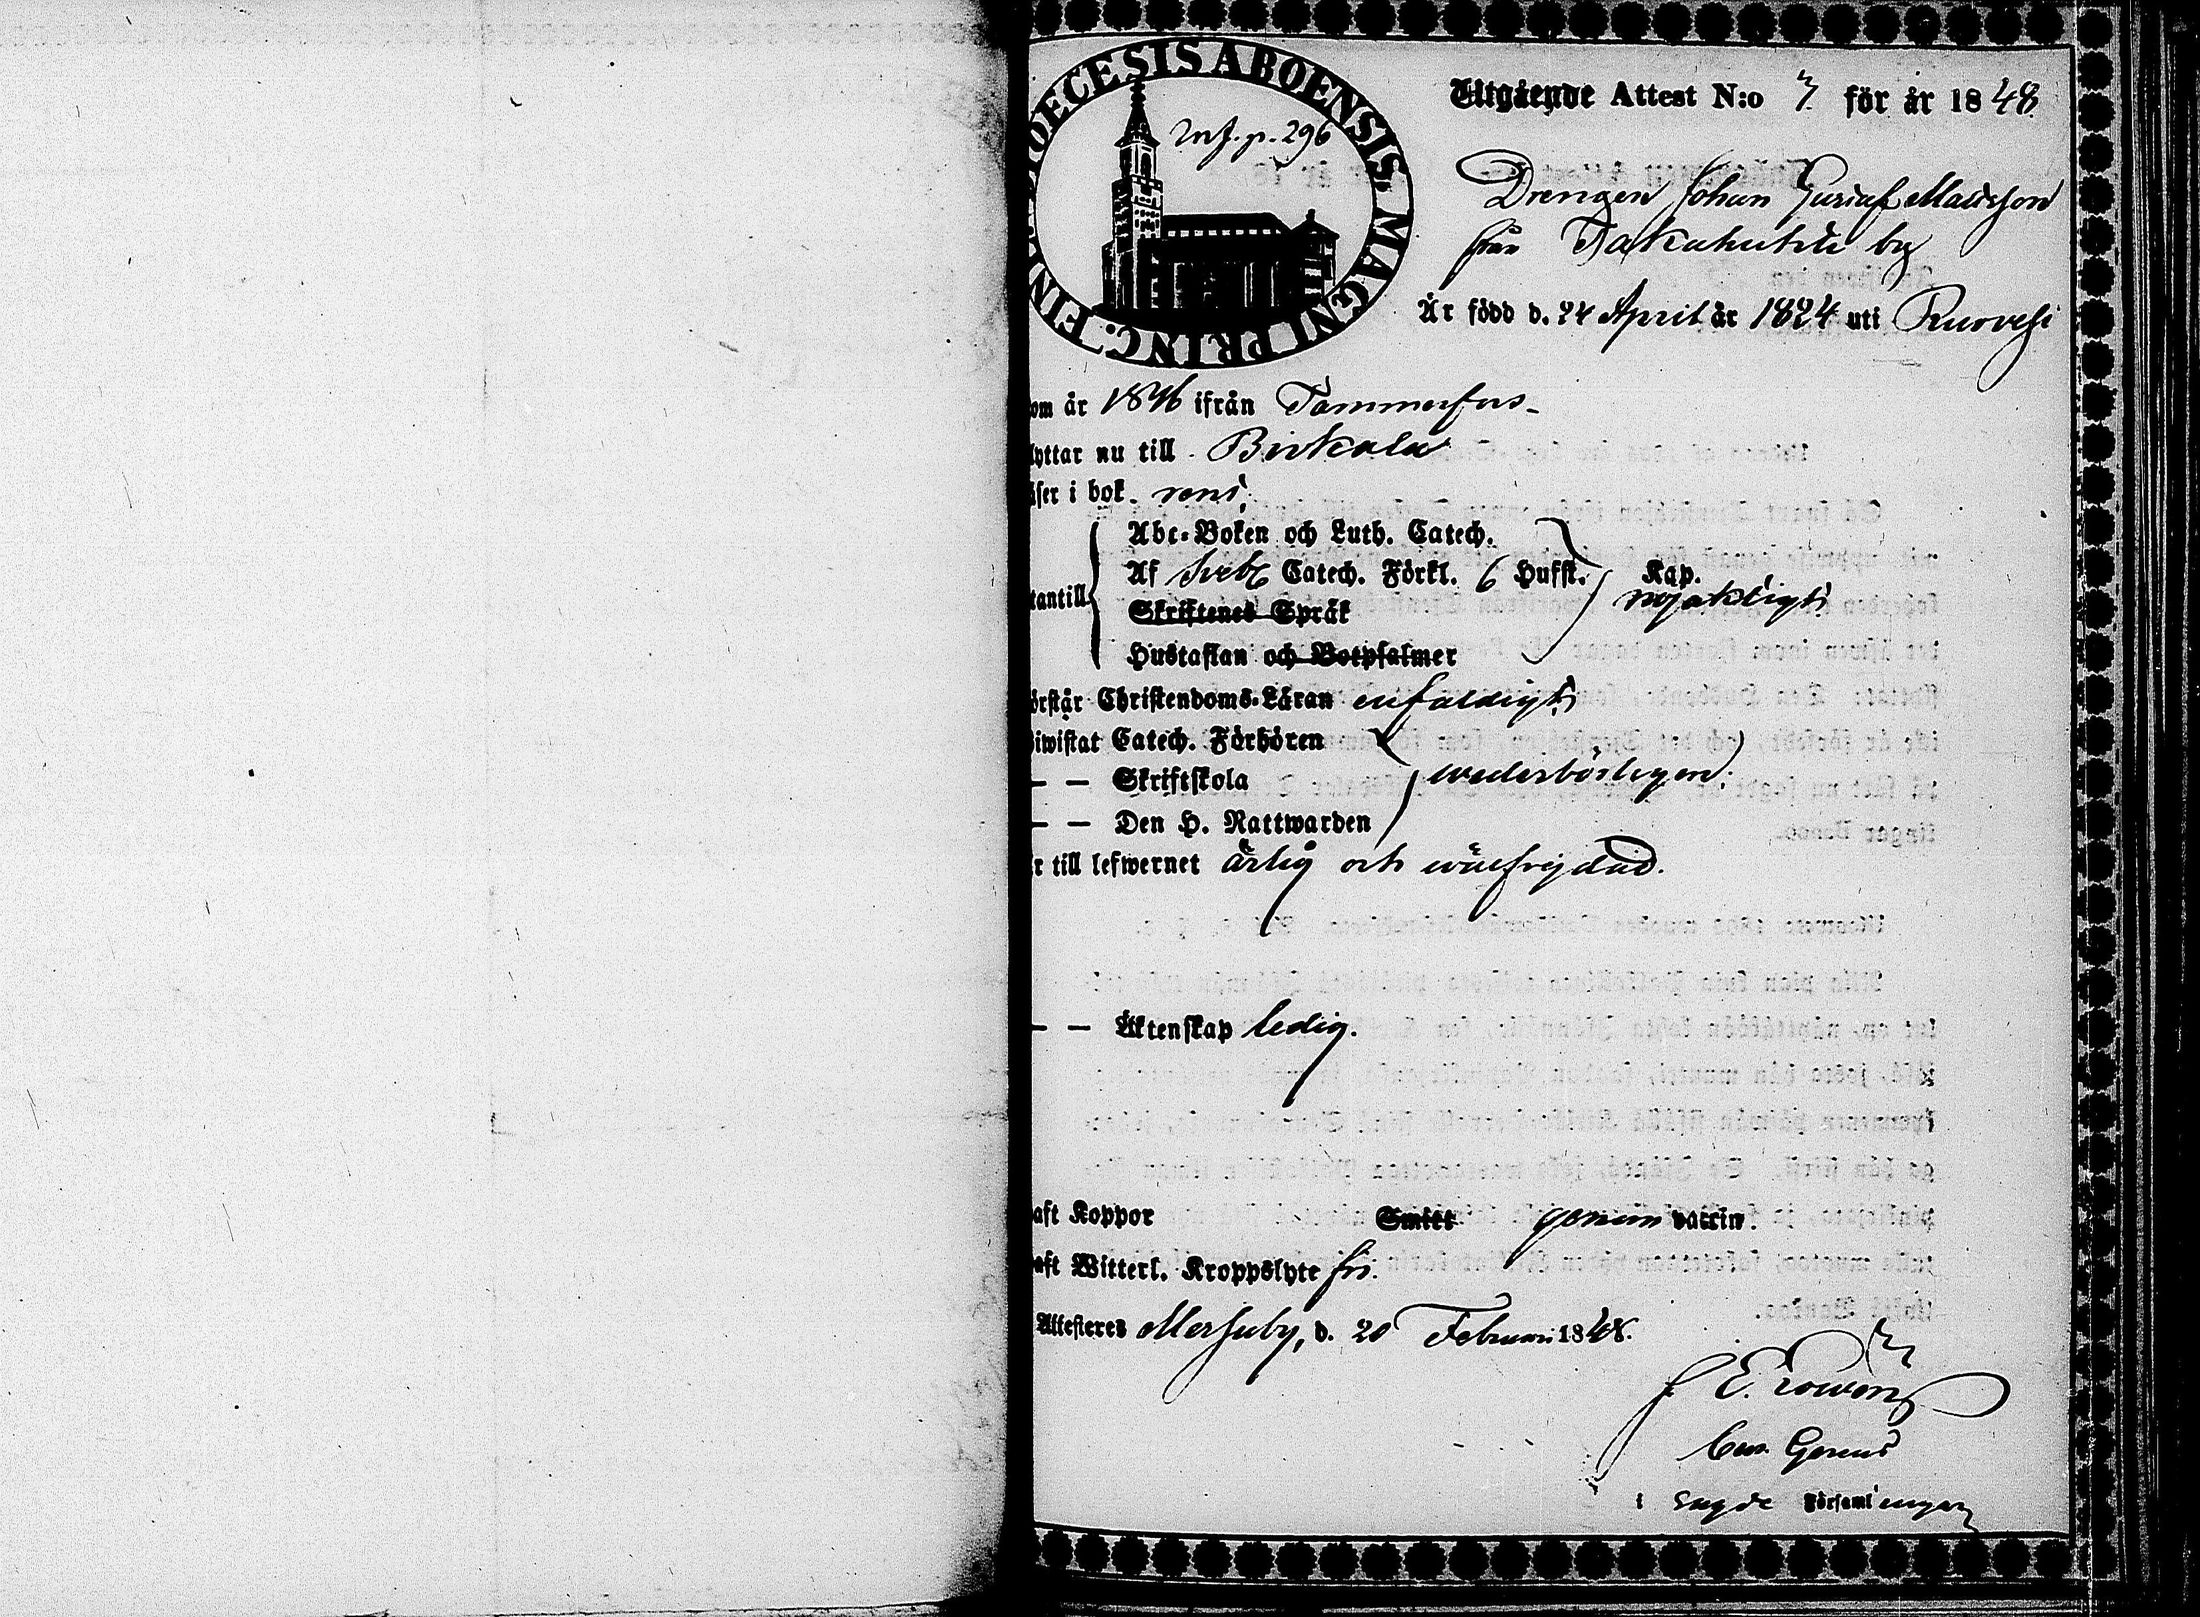 DIOECESIS ABOENSIS MAGNI PRINC. FINL
Inf. p. 296
Utgående Attest N:o 7. för år 1848
Drengen Johan Gustaf Mattsson
från Takahuhti by
Är född d. 24 April år 1824 uti Ruovesi
om år 1846 ifrån Tammerfors
lyttar nu till Birkala
äser i bok rent,
Abc-Boken och Luth. Catech.
Af Sveb. Catech. Förkl. 6 Hufst. Kap.
tantill nöjaktigt
Skriftenes Språk
Hustaflan och Botpsalmer
örstår Christendoms-Läran enfaldigt,
iwistat Catech. Förhören
— — Skriftskola wederbörligen.
— — Den H. Nattwarden
r till lefwernet ärlig och wälfrejdad.
— — Äktenskap ledig.
aft Koppor Smitt genom vaccin.
aft Witterl. Kroppslyte fri.
Attesteras Messuby, d. 20 Februari 1848.
i sagde Församlingar